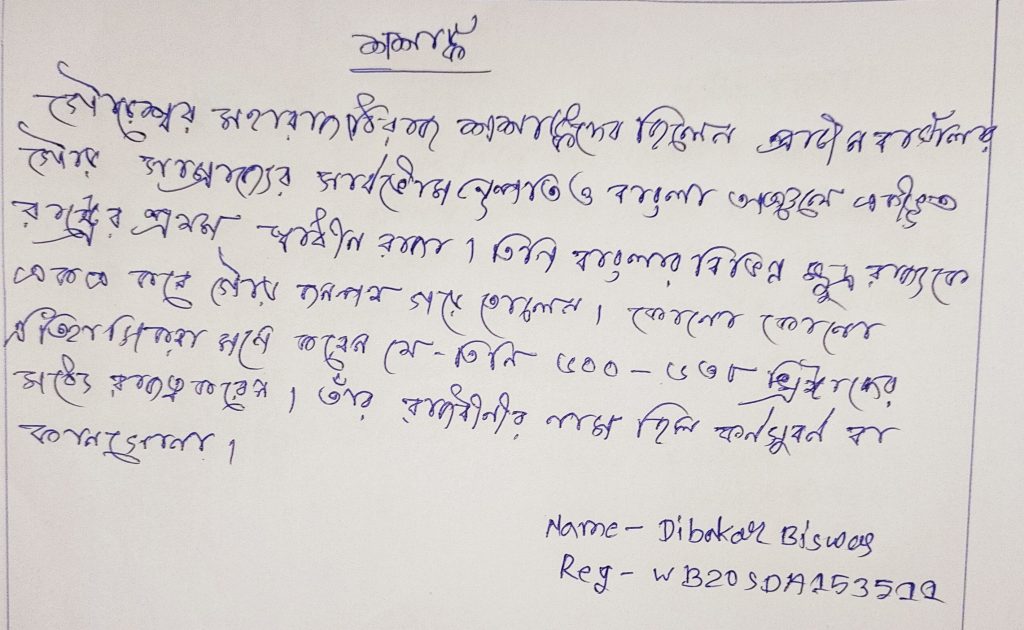 শশাঙ্ক
গৌড়েশ্বর মহারাজাধিরাজ শশাঙ্কদেব ছিলেন প্রাচীন বাংলার
গৌড় সাম্রাজ্যের সার্বভৌম নৃপতি ও বাংলা অঞ্চলে একীভূত
রাষ্ট্রের প্রথম স্বাধীন রাজা। তিনি বাংলার বিভিন্ন ক্ষুদ্র রাজ্যকে
একত্র করে গৌড় জনপদ গড়ে তোলেন। কোনো কোনো
ঐতিহাসিকরা মনে করেন যে - তিনি ৬০০ - ৬৩৮ খ্রিষ্টাব্দের
মধ্যে রাজত্ব করেন। তাঁর রাজধানীর নাম ছিল কর্নসুবর্ন বা
কানসোনা।
Name - Dibakar Biswas
Reg - WB20SDA153511